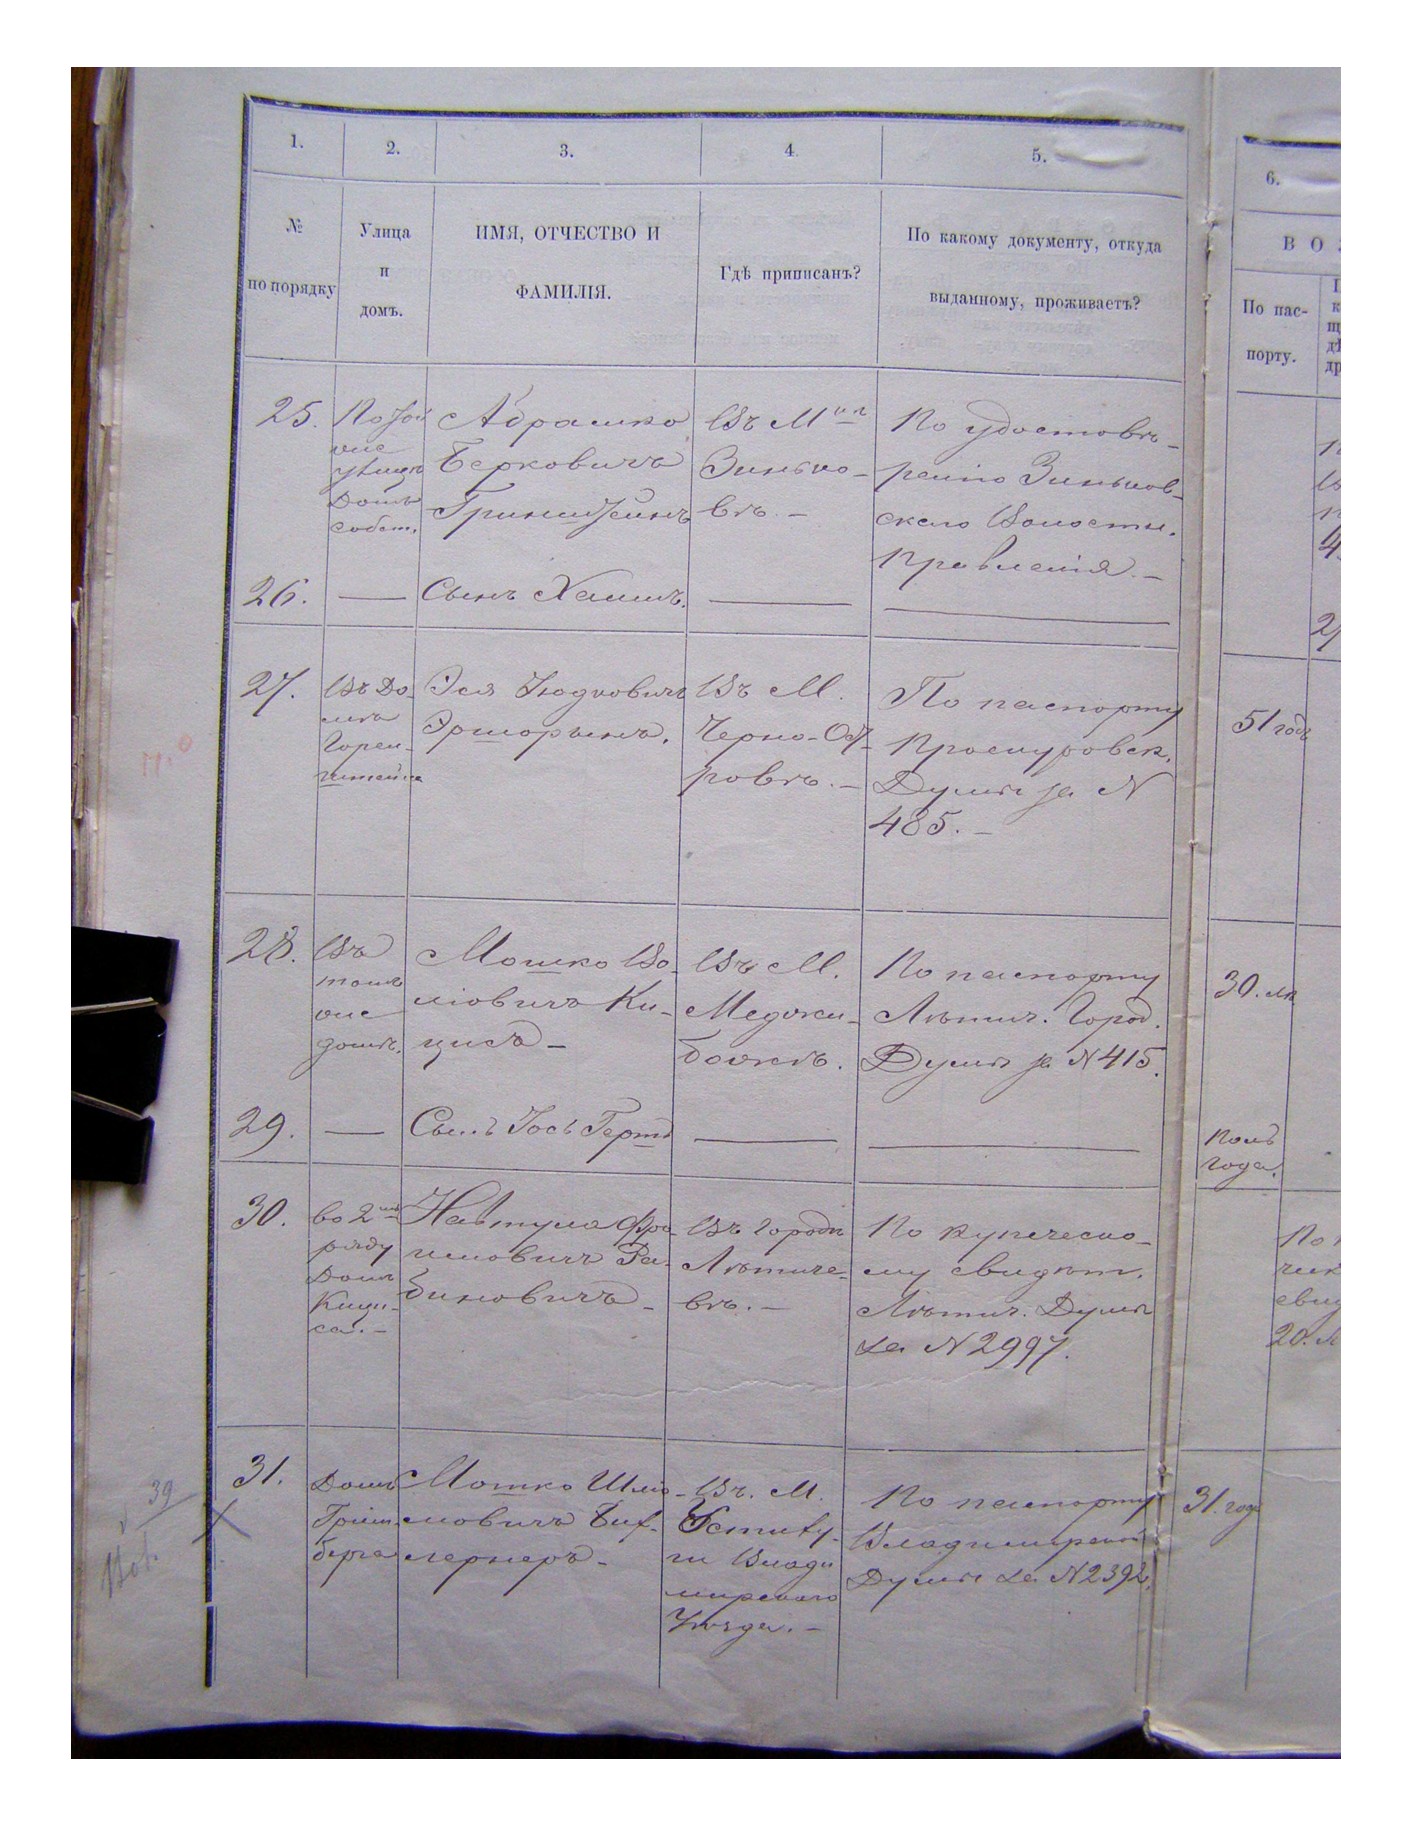 1.
2.
3.
4.
5.
6.
№
по порядку
Улица
и
домъ.
ИМЯ, ОТЧЕСТВО И
ФАМИЛІЯ.
Гдѣ приписанъ?
По какому документу, откуда
выданному, проживаетъ?
В О
По пас-
порту.
25.
По той
же
улицѣ
Домъ
собст.
Абрамко
Берковичъ
Гринштейнъ
Въ М
Зинько-
вѣ. -
По удостовѣ-
ренію Зиньков-
скаго Волостн.
Правленія. -
26.
Сынъ Хаимъ.
27.
Въ До-
мѣ
Горен-
штейна
Эся Іюдковичъ
Въ М.
Черно-Ост-
ровѣ. -
По паспорту
Проскуровск.
Думы за N
485. -
51 годъ
28.
Въ
томъ
же
домѣ.
Мошко Во-
ліовичъ Ки-
цисъ -
Въ М.
Меджи-
божѣ.
По паспорту
Лѣтич. Город.
Думы за N 415.
30. лѣ
29.
Сынъ Іось Герть
Полъ
года.
30.
во 2мъ
ряду
Домъ
Кици-
са. -
Нафтула Фро-
имовичъ Ра-
биновичъ -
Въ городѣ
Лѣтиче-
вѣ. -
По купеческо-
му свидѣт.
Лѣтич. Думы
за N 2997.
20. М
31.
Домъ
Грин-
берга
Мошко Шліо-
мовичъ
Въ. М.
Устилу-
ги Влади
мирскаго
Уѣзда. -
По паспорту
Владимірской
Думы за N 2392.
31. годъ
39